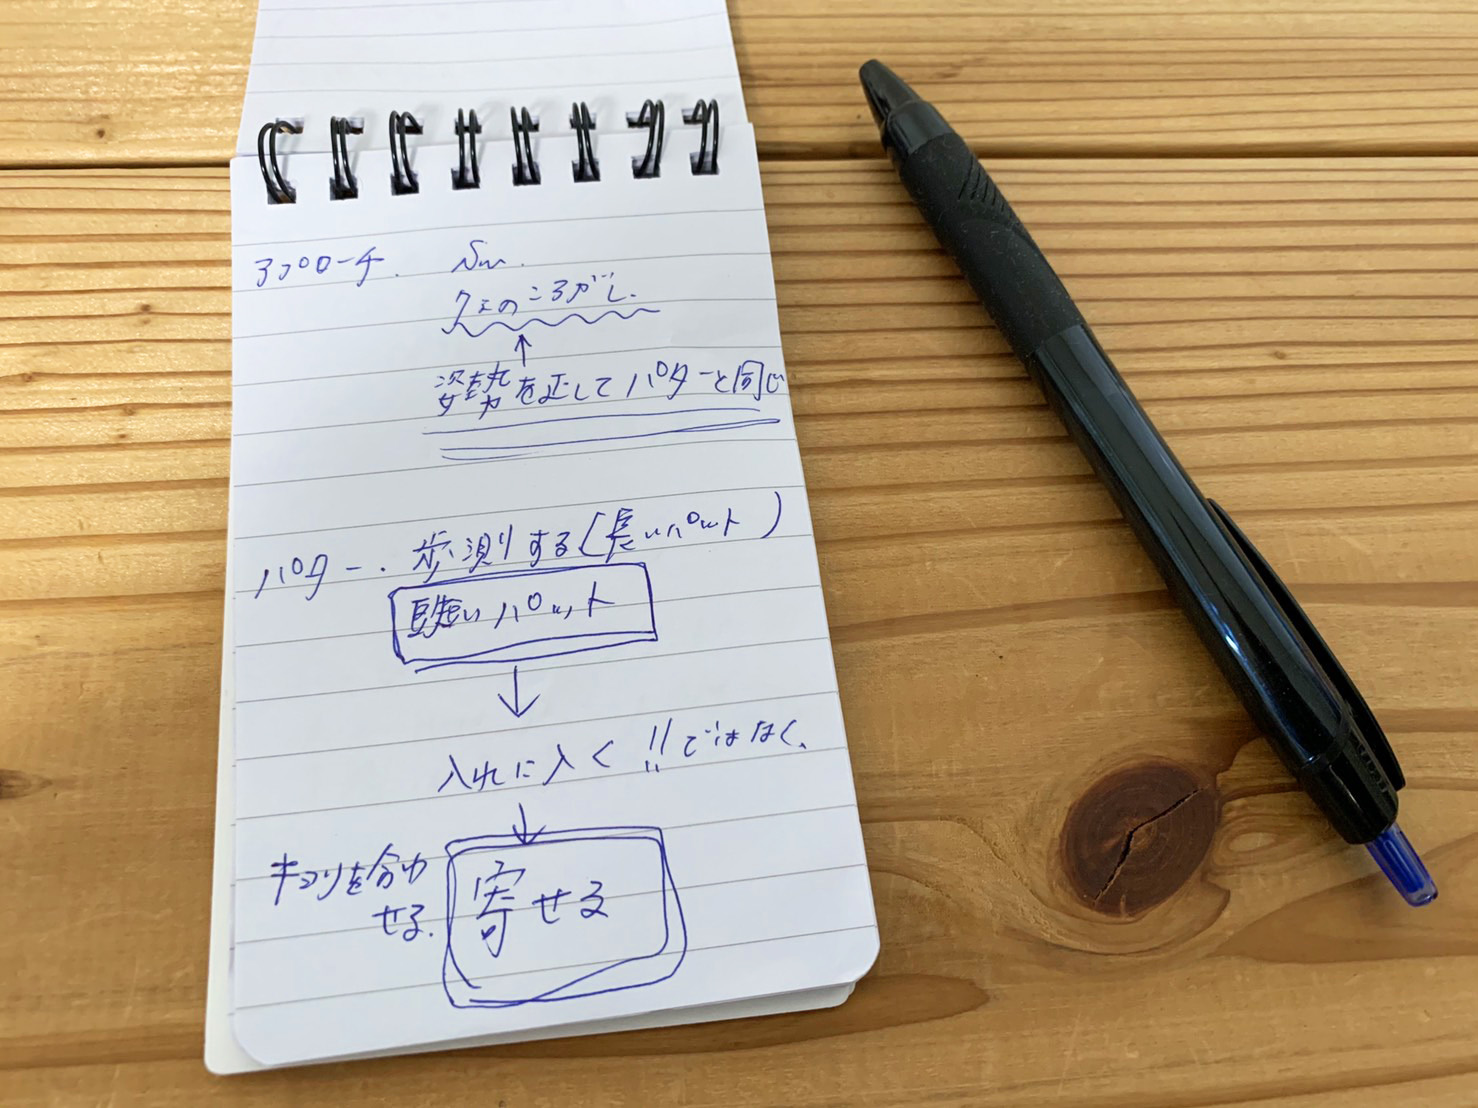 アプローチ. Sw.
クェのころがし.
↑
姿勢を正してパターと同じ
パター. 歩測りする(長いパット)
短いパット
↓
入れに入く!!ではなく、
↓
キョリを合わ
せる.
寄せる